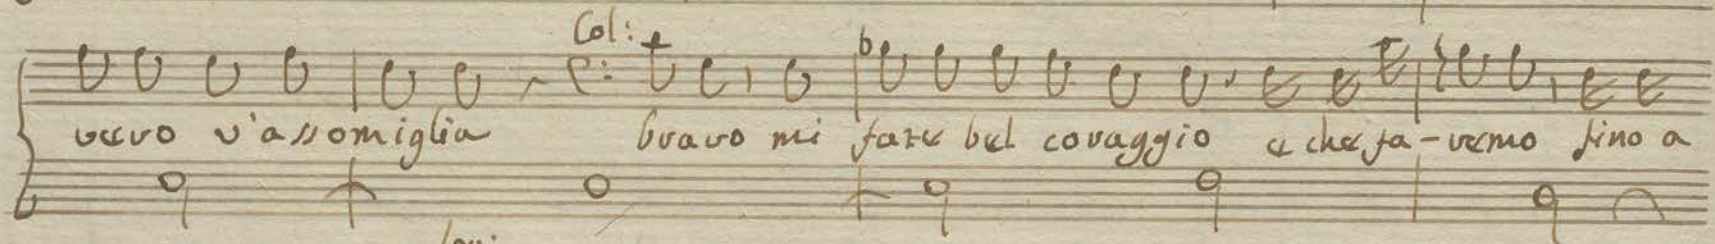 Col:
vero v'assomiglia bravo mi fate bel coraggio e che fa-remo fino a